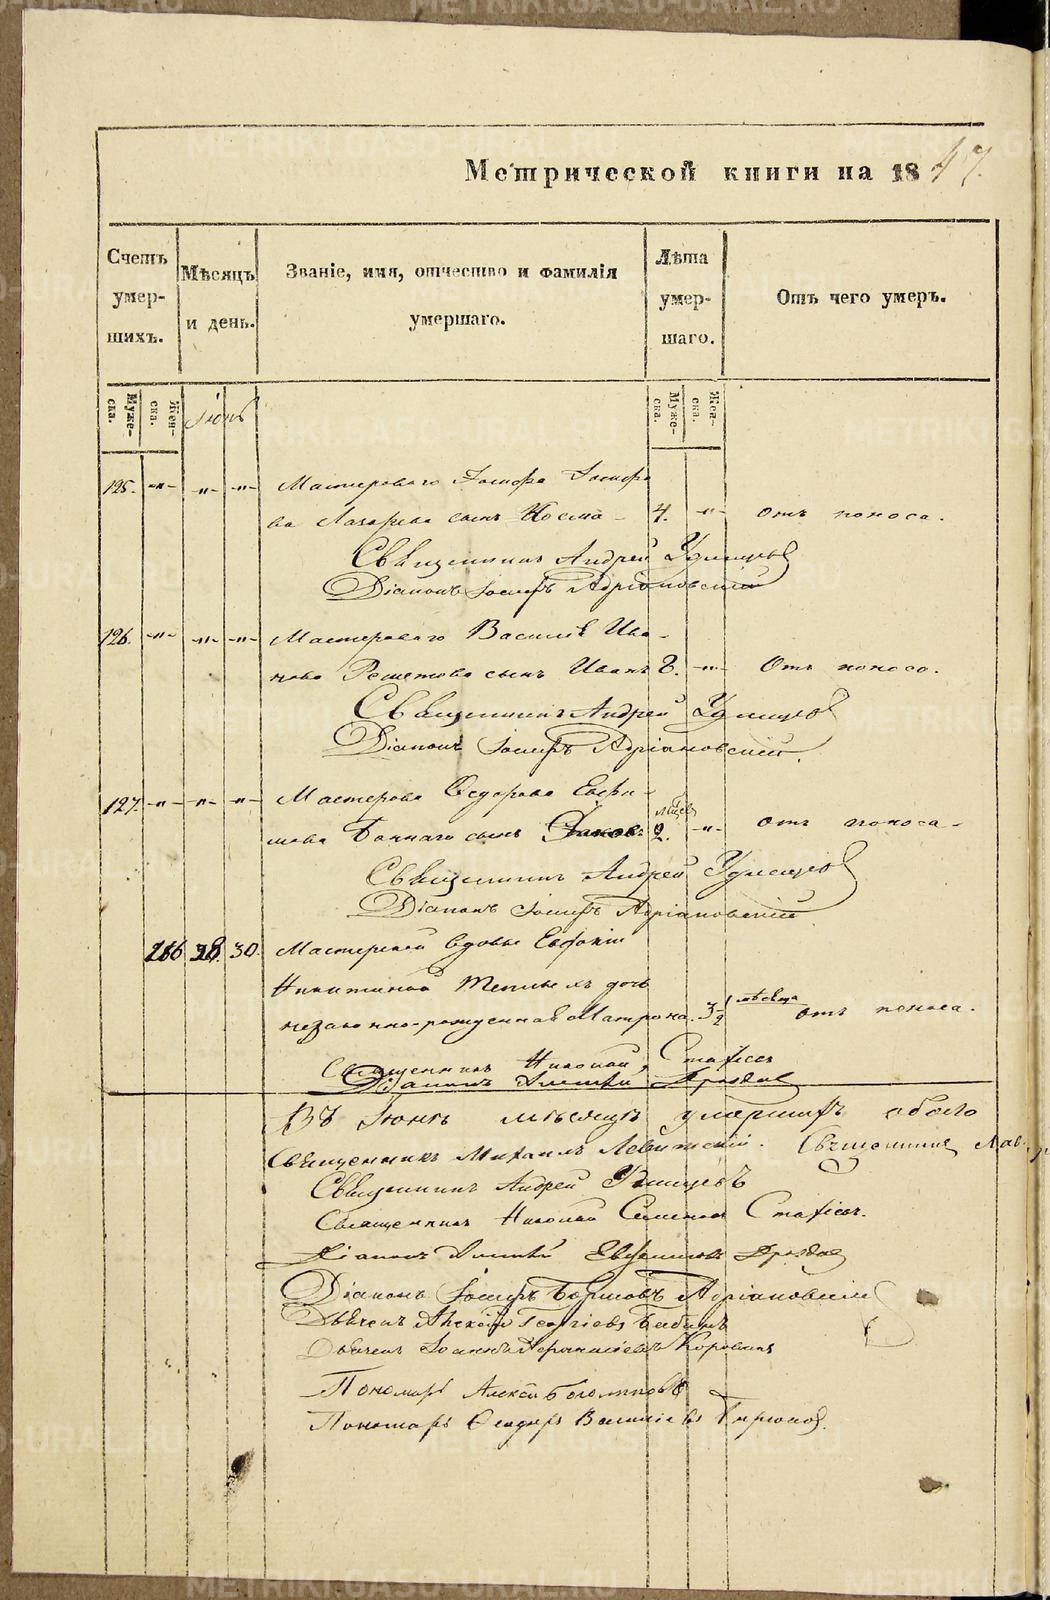 Метрической книги на 1847.
Счетъ умер- шихъ.
Мѣсяцъ и день.
Званіе, имя, отчество и фамилія умершаго.
Лѣта умер- шаго.
Отъ чего умеръ.
Муже- ска.
Жен- ска.
Іюнь
Муже- ска.
Жен- ска.
125. -"- -"- -"- Мастероваго Іосифа Іосифо
ва Лазарева сынъ Косма - 4. -"- отъ поноса.
Священникъ Андрей Удинцовъ
Діаконъ Іосифъ Адріановскій
126. -"- -"- -"- Мастероваго Василія Ива-
нова Решетова сынъ Иванъ 8. -"- Отъ поноса.
Священникъ Андрей Удинцовъ
Діаконъ Іосифъ Адріановскій.
127. -"- -"- -"- Мастерова Ѳедорова Ефи-
мова сынъ Яковъ 2. мѣсяц -"- отъ поноса-
Священникъ Андрей Удинцовъ
Діаконъ Іосифъ Адріановскій
116 28. 30. Мастерской вдовы Евфоніи
Никитиной дочь
незаконно-рожденная Матрона. 3 1/2 мѣсяца отъ поноса.
Священникъ Николай Стафіевъ
Діаконъ Дроздовъ
Въ Іюнѣ мѣсяцѣ умершихъ обоего
Священникъ Михаилъ Левитскій. Священникъ
Священникъ Андрей Удинцовъ
Священникъ Николай Стафіевъ.
Діаконъ Евфимовъ Дроздовъ
Діаконъ Іосифъ Борисовъ Адріановскій
Дьячекъ Алексѣй Георгіевъ Бабинъ
Дьячекъ Іоаннъ Коровинъ
Пономарь Алексѣй Боголѣповъ
Пономарь Ѳеодоръ Василіевъ